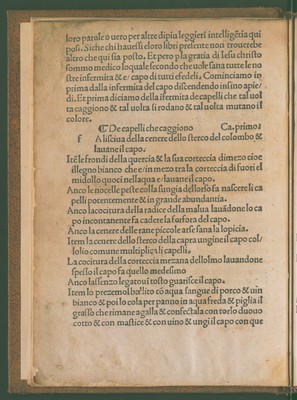 loro parole o uero per altre dipiu leggieri intelligẽtia qui
posi. Si che chi hauessi eloro libri presente non trouerebe
altro che qui sia posto. Et pero p la gratia di Iesu christo
sommo medico lo quale secondo che uole sana tutte le no
stre infermita & e/ capo di tutti efedeli. Cominciamo in
prima dalla infermita del capo discendendo insino apie/
di. Et prima diciamo della ifermita de capelli che tal uol
ta caggiono & tal uolta si rodano & tal uolta mutano il
colore.
¶ De capelli che caggiono Ca. primo:
f A lisciua della cenere dello sterco del colombo &
lauane il capo.
Itẽ le frondi della quercia & la sua corteccia di mezo cioe
il legno bianco che e/ in mezo tra la corteccia di fuori el
midollo quoci nellaqua e/ lauane il capo:
Anco le nocelle peste colla sungia dellorso fa nascere li ca
pelli potentemente & in grande abundantia.
Anco la cocitura della radice della malua lauãdone lo ca
po incontanente fa cadere la furfora del capo.
Anco la cenere delle rane piccole arse sana la lopicia.
Item la cenere dello sterco della capra ungine il capo col/
lolio comune multiplica li capelli.
La cocitura della corteccia mezana dellolmo lauandone
spesso il capo fa quello medesimo
Anco lassenzo legato ui tosto guarisce il capo.
Item lo prezemolo collito cõ aqua sangue di porco & uin
bianco & poi lo cola per panno in aqua freda & piglia il
grasso che rimane a galla & confectala con torlo duouo
cotto & con mastice & con uino & ungi il capo con que